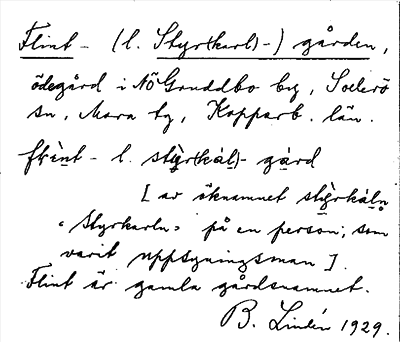 Flint- (l. Styr(karl)-) gården,
ödegård i Nö Gruddbo by, Solerö
sn, Mora tg, Kopparb. län.
flìnt- l. stỳr(kàl)- gàrd
[ av öknamnet stỳrkàln
"Styrkarln" på en person, som
varit uppsyningsman ].
Flint är gamla gårdsnamnet.
B. Lindén 1929.